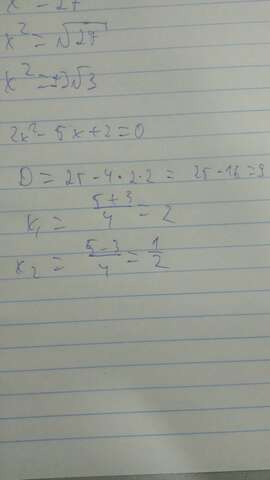 x² = 27
x² = √27
x² = ±3√3
2x² - 5x + 2 = 0
D = 25 - 4 · 2 · 2 = 25 - 16 = 9
x₁ = (5+3)/4 = 2
x₂ = (5-3)/4 = 1/2